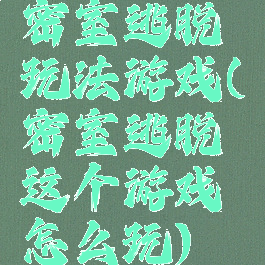 密室逃脱
玩法游戏(
密室逃脱
这个游戏
怎么玩)